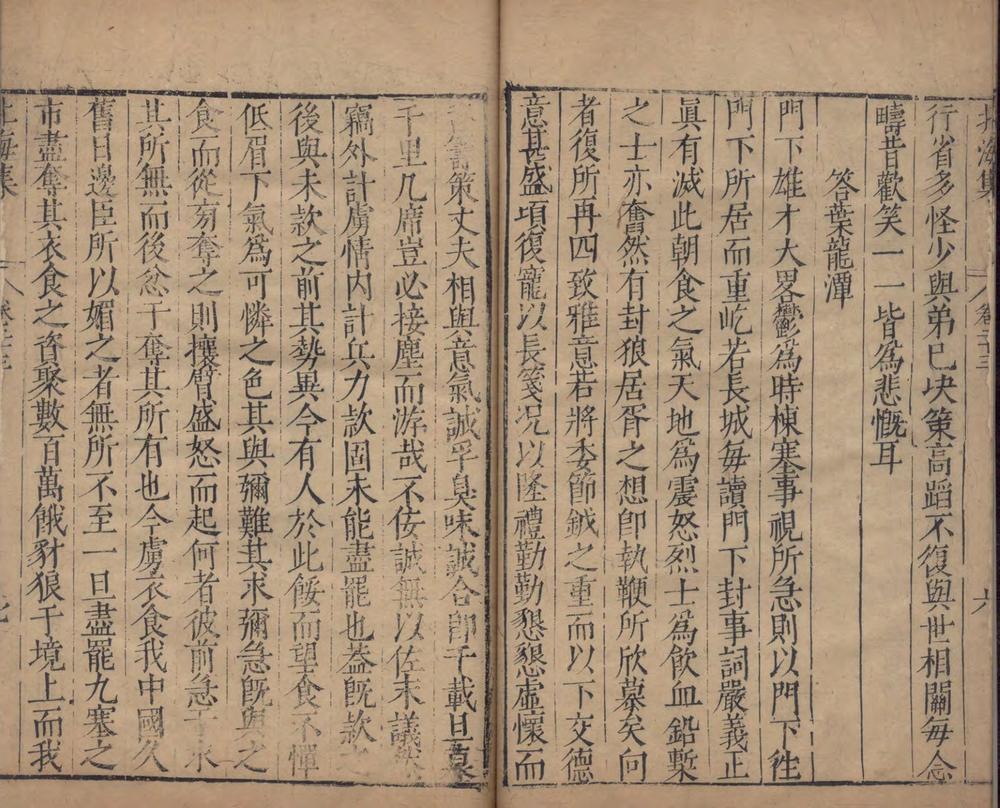 北海集 卷之三 六
行省多怪少與弟已决策高蹈不復與世相關每念
疇昔歡笑一一皆爲悲慨耳
答葉龍潭
門下雄才大畧鬱爲時棟塞事視所急則以門下徃
門下所居而重屹若長城每讀門下封事詞嚴義正
眞有滅此朝食之氣天地爲震怒烈士爲飲血鉛槧
之士亦奮然有封狼居胥之想卽執鞭所欣慕矣向
者復所再四致雅意若將委節鉞之重而以下交德
意甚盛頃復寵以長箋况以隆禮勤勤懇懇虛懷而
籌策丈夫相與意氣誠孚臭味誠合卽千載旦暮
千里几席豈必接塵而游哉不佞誠無以佐末議然
竊外計虜情內計兵力款固未能盡罷也葢旣款之
後與未款之前其勢異今有人於此餒而望食不憚
低眉下氣爲可憐之色其與彌難其求彌急旣與之
食而從旁奪之則攘臂盛怒而起何者彼前急于求
其所無而後忿于奪其所有也今虜衣食我中國久
舊日邊臣所以媚之者無所不至一旦盡罷九塞之
市盡奪其衣食之資聚數百萬餓豺狼于境上而我
北海集 七